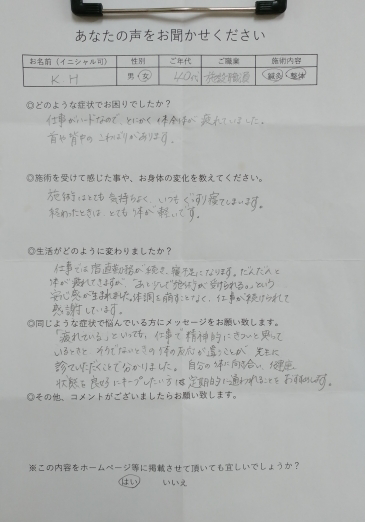 あなたの声をお聞かせください
お名前(イニシャル可) 性別 ご年代 ご職業 施術内容
K.H 男・女 40代 施設職員 鍼灸・整体
◎どのような症状でお困りでしたか?
仕事がハードなので、とにかく体全体が疲れていました。
首や背中のこわばりがあります。
◎施術を受けて感じた事や、お身体の変化を教えてください。
施術はとても気持ちよく、いつもぐっすり寝てしまいます。
終わったときは、とても体が軽いです。
◎生活がどのように変わりましたか?
仕事では宿直勤務が続き、寝不足になります。だんだんと
体が疲れてきますが、"あと少しで施術が受けられる。"という
安心感が生まれました。体調を崩すことなく、仕事が続けられて
感謝しています。
◎同じような症状で悩んでいる方にメッセージをお願い致します。
「疲れている」といっても、仕事で精神的にきついと思って
いるときと そうでないときの体の反応が違うことが 先生に
診ていただくことで分かりました。自分の体に向き合い、健康
状態を良好にキープしたい方は定期的に通われることをおすすめします。
◎その他、コメントがございましたらお願い致します。
※この内容をホームページ等に掲載させて頂いても宜しいでしょうか?
はい いいえ